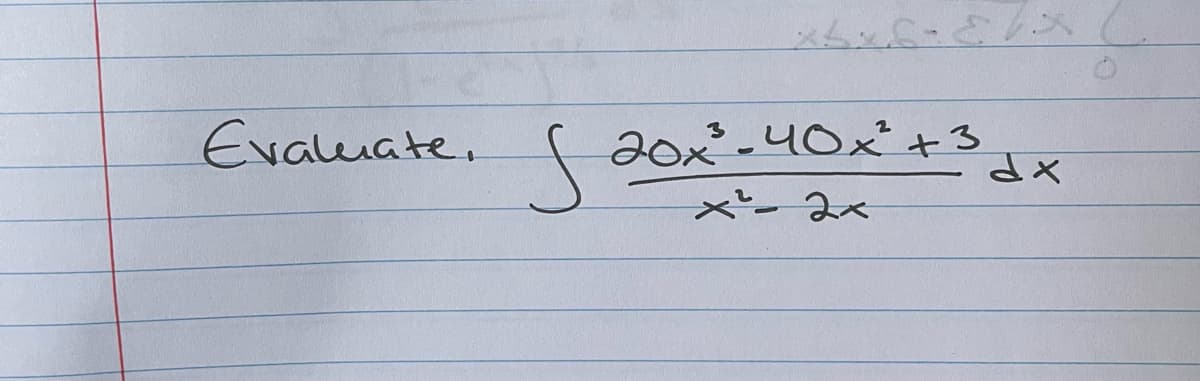 Evaluate. ∫ (20x³ - 40x² + 3)/(x² - 2x) dx